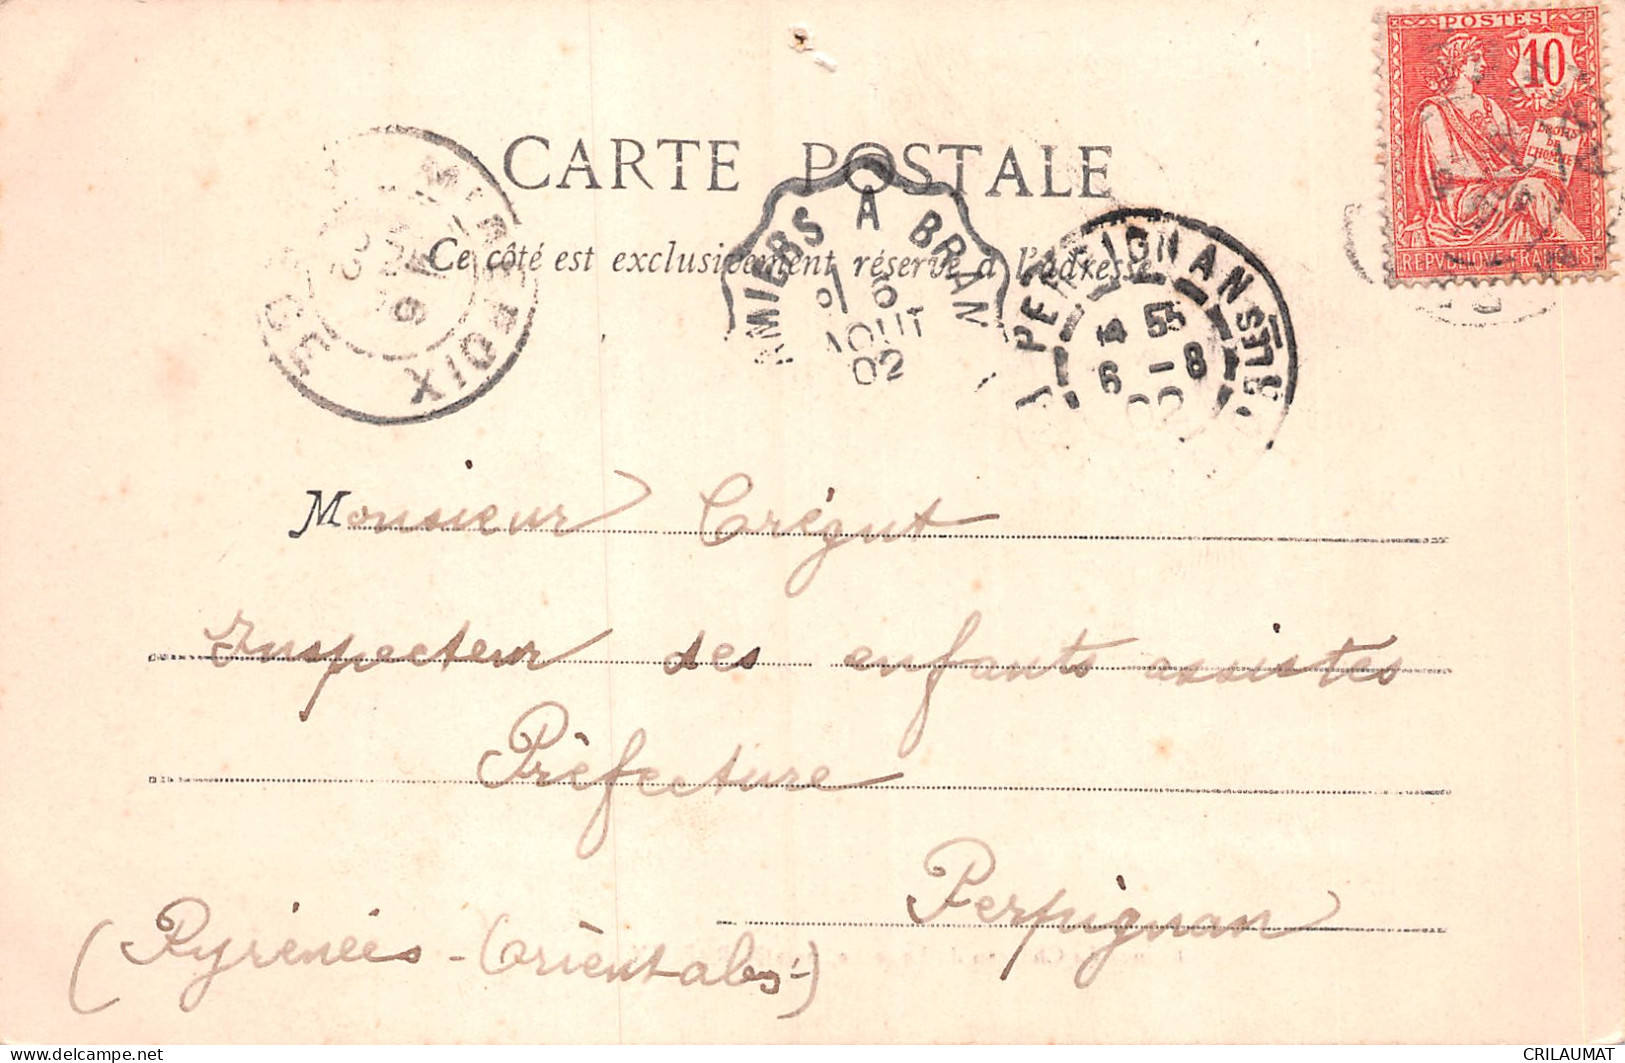 POSTES
10
DROITS
DE
L'HOMME
REPVBLIQVE FRANÇAISE
CARTE POSTALE
Ce côté est exclusivement réservé à l'adresse
MIREPOIX
AMIERS A BRAN
6
AOUT
02
PERPIGNAN
6 - 8
Monsieur Crégut
Inspecteur des enfants assistes
Préfecture
Perpignan
(Pyrénées-Orientales)
CRILAUMAT